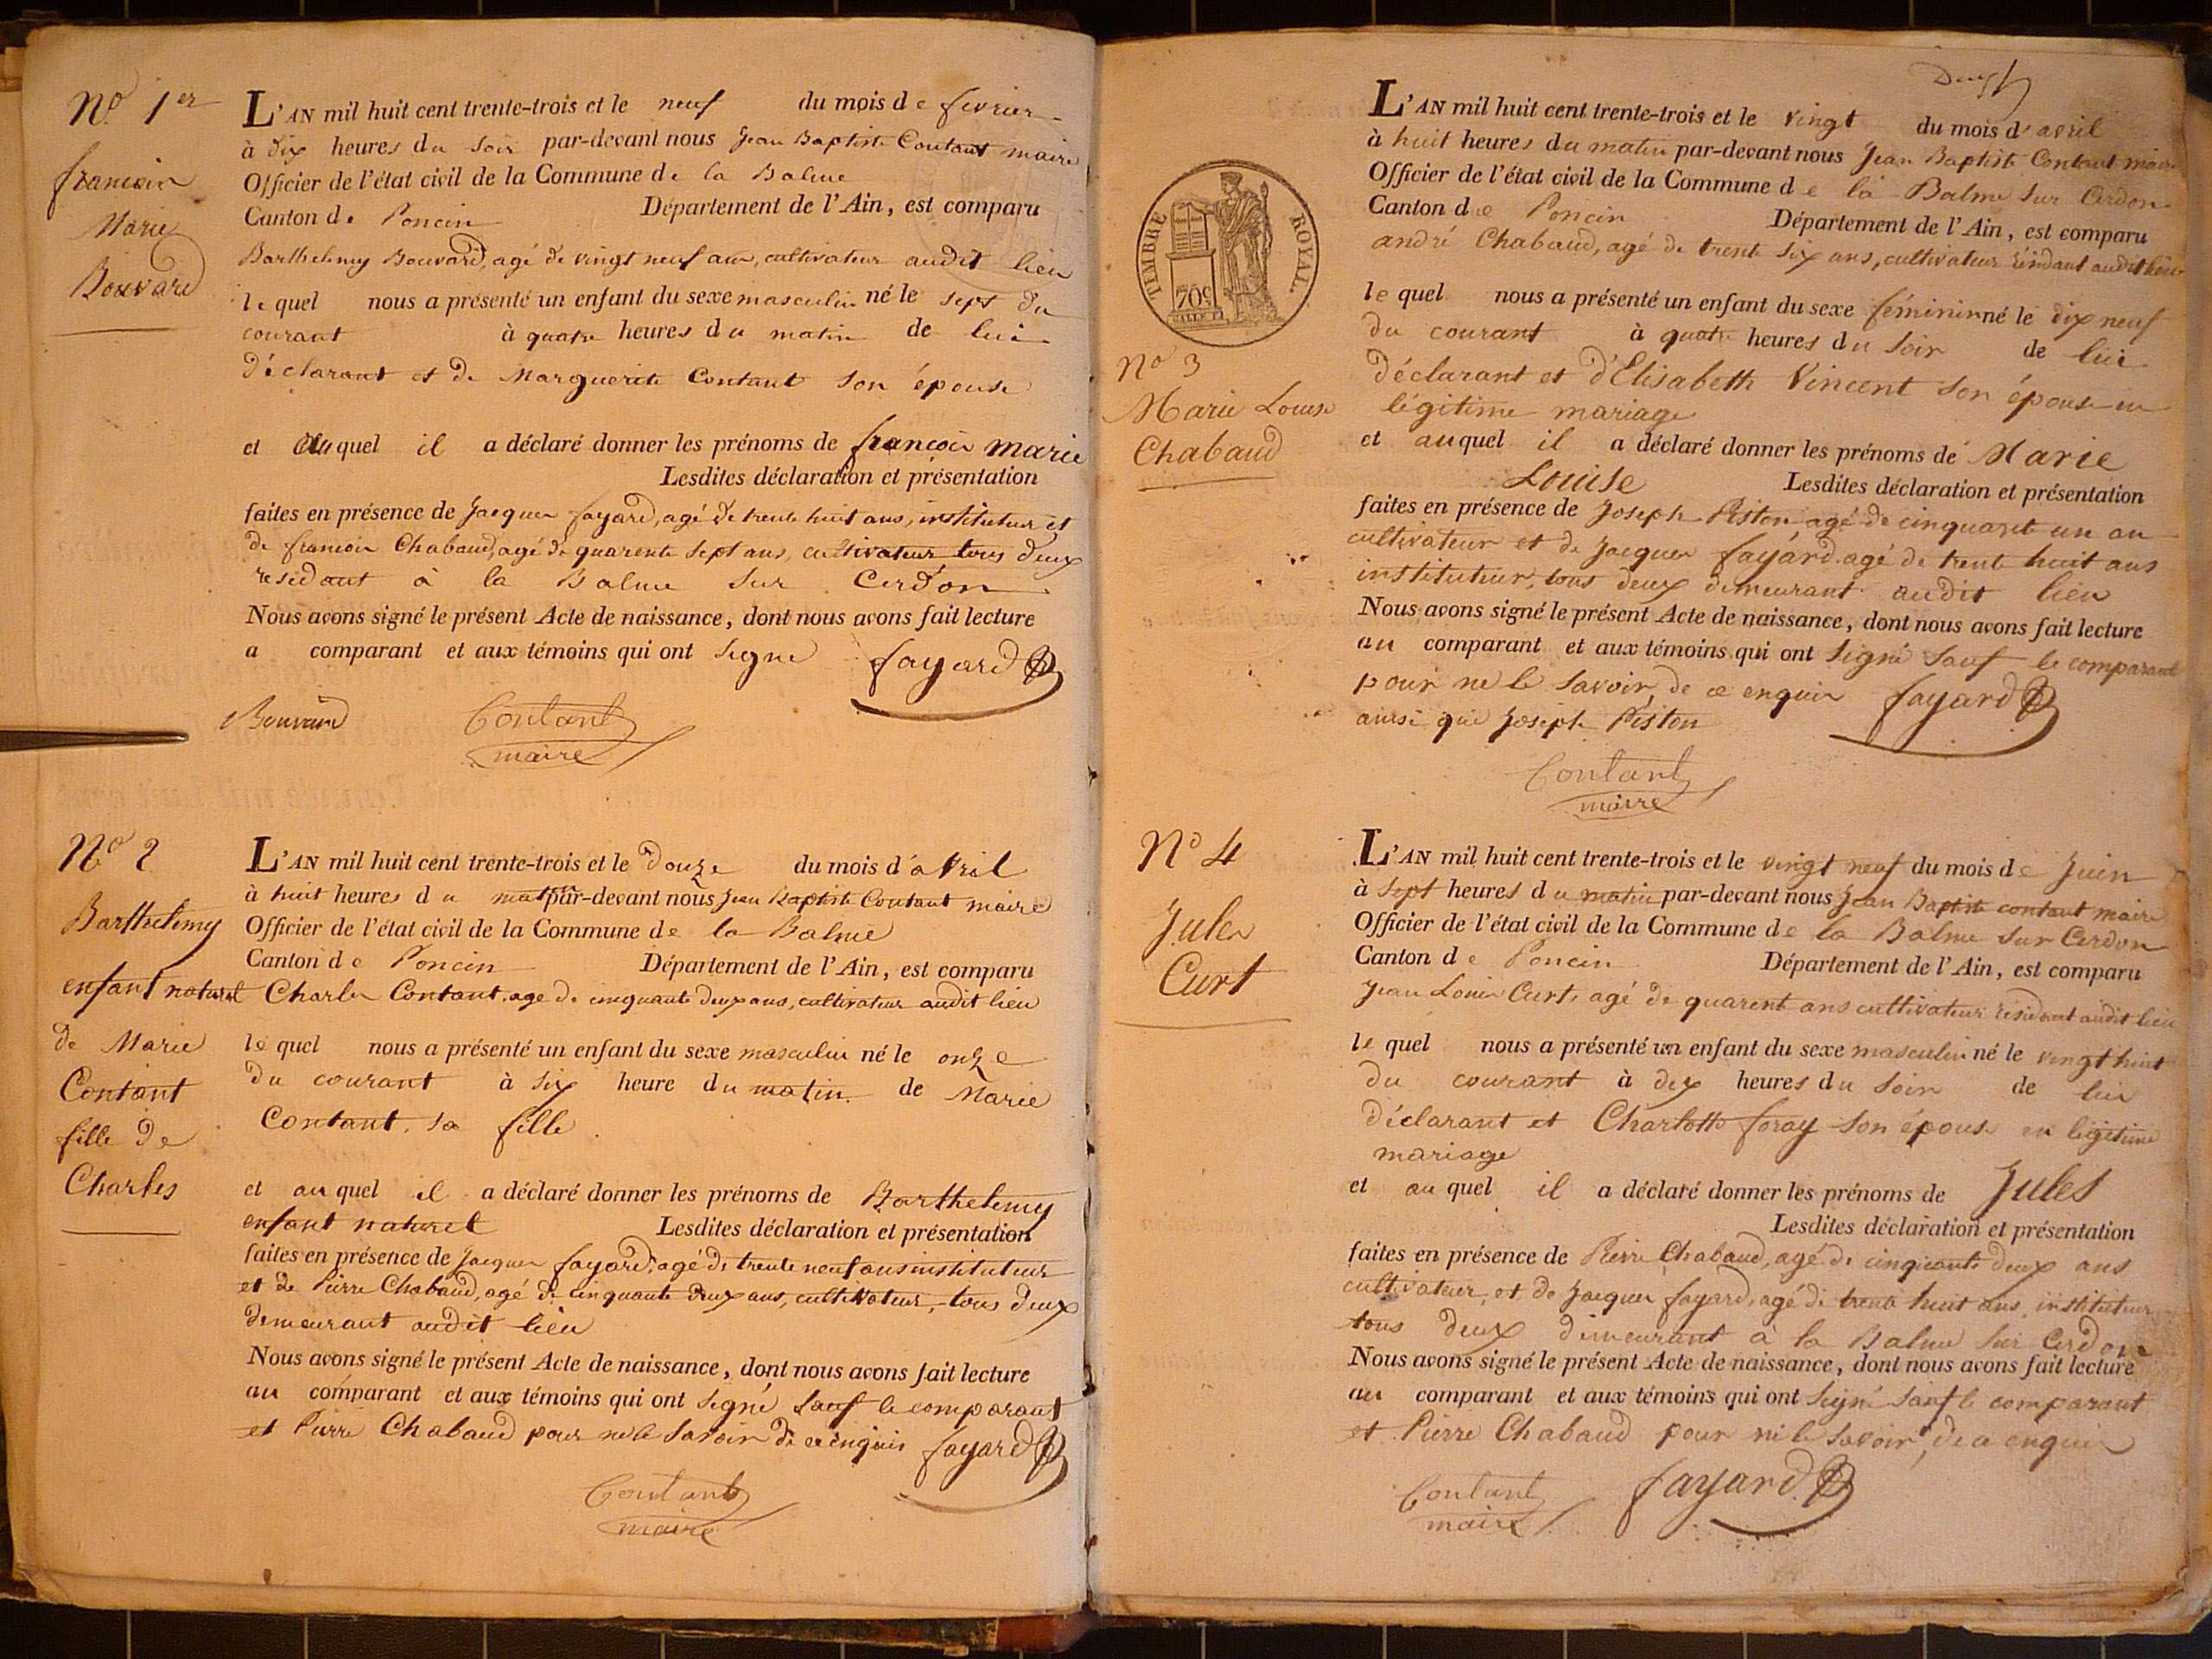 No 1er
françois
Marie
Bouvard
L'AN mil huit cent trente-trois et le neuf du mois de fevrier
à dix heures du soir par-devant nous Jean Baptiste Contant maire
Officier de l'état civil de la Commune de la Balme
Canton de Poncin Département de l'Ain, est comparu
Barthelemy Bouvard, agé de vingt neuf ans, cultivateur audit lieu
lequel nous a présenté un enfant du sexe masculin né le sept du
courant à quatre heures du matin de lui
déclarant et de Marguerite Contant son épouse
et auquel il a déclaré donner les prénoms de françois marie
Lesdites déclaration et présentation
faites en présence de Jacques fayard, agé de trente huit ans, instituteur et
de françois Chabaud, agé de quarente sept ans, cultivateur tous deux
residant à la Balme sur Cerdon
Nous avons signé le présent Acte de naissance, dont nous avons fait lecture
a comparant et aux témoins qui ont signé fayard
Bouvard Contant
maire
No 2
Barthelemy
enfant naturel
de Marie
Contant
fille de
Charles
L'AN mil huit cent trente-trois et le douze du mois d'avril
à huit heures du matin par-devant nous Jean Baptiste Contant maire
Officier de l'état civil de la Commune de la Balme
Canton de Poncin Département de l'Ain, est comparu
Charles Contant, age de cinquante deux ans, cultivateur audit lieu
lequel nous a présenté un enfant du sexe masculin né le onze
du courant à six heure du matin de Marie
Contant sa fille
et auquel il a déclaré donner les prénoms de Barthelemy
enfant naturel Lesdites déclaration et présentation
faites en présence de Jacques fayard, agé de trente neuf ans instituteur
et de Pierre Chabaud, agé de cinquante deux ans, cultivateur, tous deux
demeurant audit lieu
Nous avons signé le présent Acte de naissance, dont nous avons fait lecture
au comparant et aux témoins qui ont signé sauf le comparant
et Pierre Chabaud pour ne le savoir de ce enquis fayard
Contant
maire
TIMBRE ROYAL.
70c
No 3
Marie Louise
Chabaud
L'AN mil huit cent trente-trois et le vingt du mois d'avril
à huit heures du matin par-devant nous Jean Baptiste Contant maire
Officier de l'état civil de la Commune de la Balme sur Cerdon
Canton de Poncin Département de l'Ain, est comparu
andré Chabaud, agé de trente six ans, cultivateur résidant audit lieu
lequel nous a présenté un enfant du sexe féminin né le dix neuf
du courant à quatre heures du soir de lui
déclarant et d'Elisabeth Vincent son épouse en
légitime mariage
et auquel il a déclaré donner les prénoms de Marie
Louise Lesdites déclaration et présentation
faites en présence de Joseph Piston agé de cinquante un an
cultivateur et de Jacques fayard agé de trente huit ans
instituteur, tous deux demeurant audit lieu
Nous avons signé le présent Acte de naissance, dont nous avons fait lecture
au comparant et aux témoins qui ont signé sauf le comparant
pour ne le savoir, de ce enquis fayard
ainsi que Joseph Piston
Contant
maire
No 4
Jules
Curt
L'AN mil huit cent trente-trois et le vingt neuf du mois de Juin
à sept heures du matin par-devant nous Jean Baptiste contant maire
Officier de l'état civil de la Commune de la Balme sur Cerdon
Canton de Poncin Département de l'Ain, est comparu
Jean Louis Curt, agé de quarent ans cultivateur résidant audit lieu
lequel nous a présenté un enfant du sexe masculin né le vingt huit
du courant à dix heures du soir de lui
déclarant et Charlotte foray son épouse en légitime
mariage
et auquel il a déclaré donner les prénoms de Jules
Lesdites déclaration et présentation
faites en présence de Pierre Chabaud, agé de cinquante deux ans
cultivateur, et de Jacques fayard, agé de trente huit ans, instituteur
tous deux demeurant a la Balme sur Cerdon
Nous avons signé le présent Acte de naissance, dont nous avons fait lecture
au comparant et aux témoins qui ont signé sauf le comparant
et Pierre Chabaud pour ne le savoir, de ce enquis
Contant fayard
maire